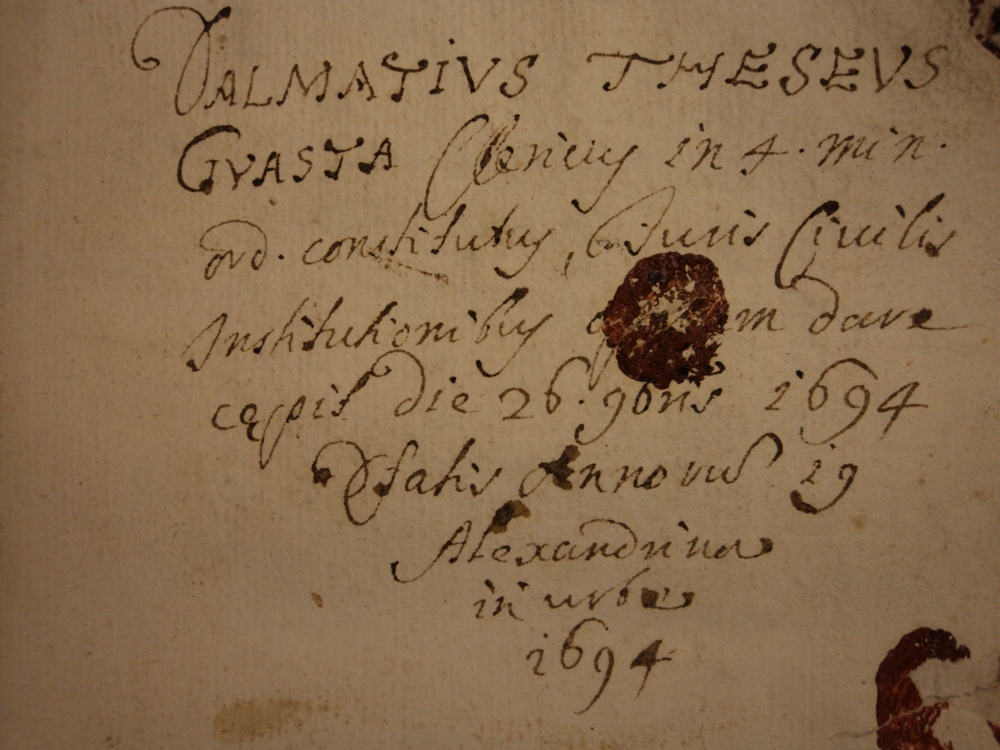 DALMATIVS THESEVS
GVASTA Clericus in 4. min.
ord. constitutus, Juris Civilis
Institutionibus dare
cępit die 26. 9bris 1694
Ætatis Annorum 19
Alexandrina
in urbe
1694